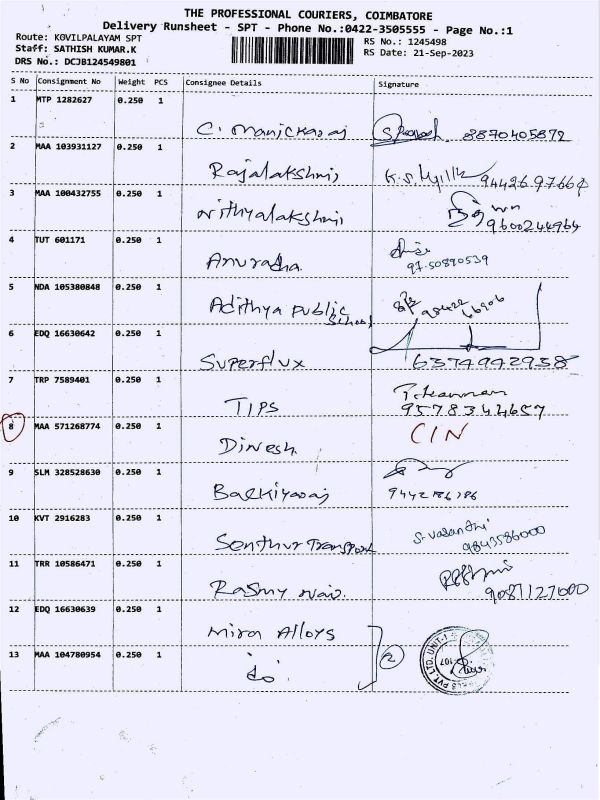 THE PROFESSIONAL COURIERS, COIMBATORE
Delivery Runsheet - SPT - Phone No.:0422-3505555 - Page No.:1
Route: KOVILPALAYAM SPT
RS No.: 1245498
Staff: SATHISH KUMAR.K
RS Date: 21-Sep-2023
DRS No.: DCJB124549801
S No Consignment No Weight PCS Consignee Details Signature
1 MTP 1282627 0.250 1
C. Manickaraj 8870405872
2 MAA 103931127 0.250 1
Rajalakshmi
3 MAA 100432755 0.250 1
Nithyalakshmi 9600244964
4 TUT 601171 0.250 1
Anuradha 97.50890539
5 NDA 105380848 0.250 1
Adithya public School
6 EDQ 16630642 0.250 1
Superflux 6374942938
7 TRP 7589401 0.250 1
TIPS 9578344657
8 MAA 571268774 0.250 1
Dinesh CIN
9 SLM 328528630 0.250 1
9442786786
10 KVT 2916283 0.250 1
Senthur Transport S. Vasanthi 9843586000
11 TRR 10586471 0.250 1
9087127000
12 EDQ 16630639 0.250 1
Mira Alloys
13 MAA 104780954 0.250 1
do 2
PVT. LTD. UNIT-1